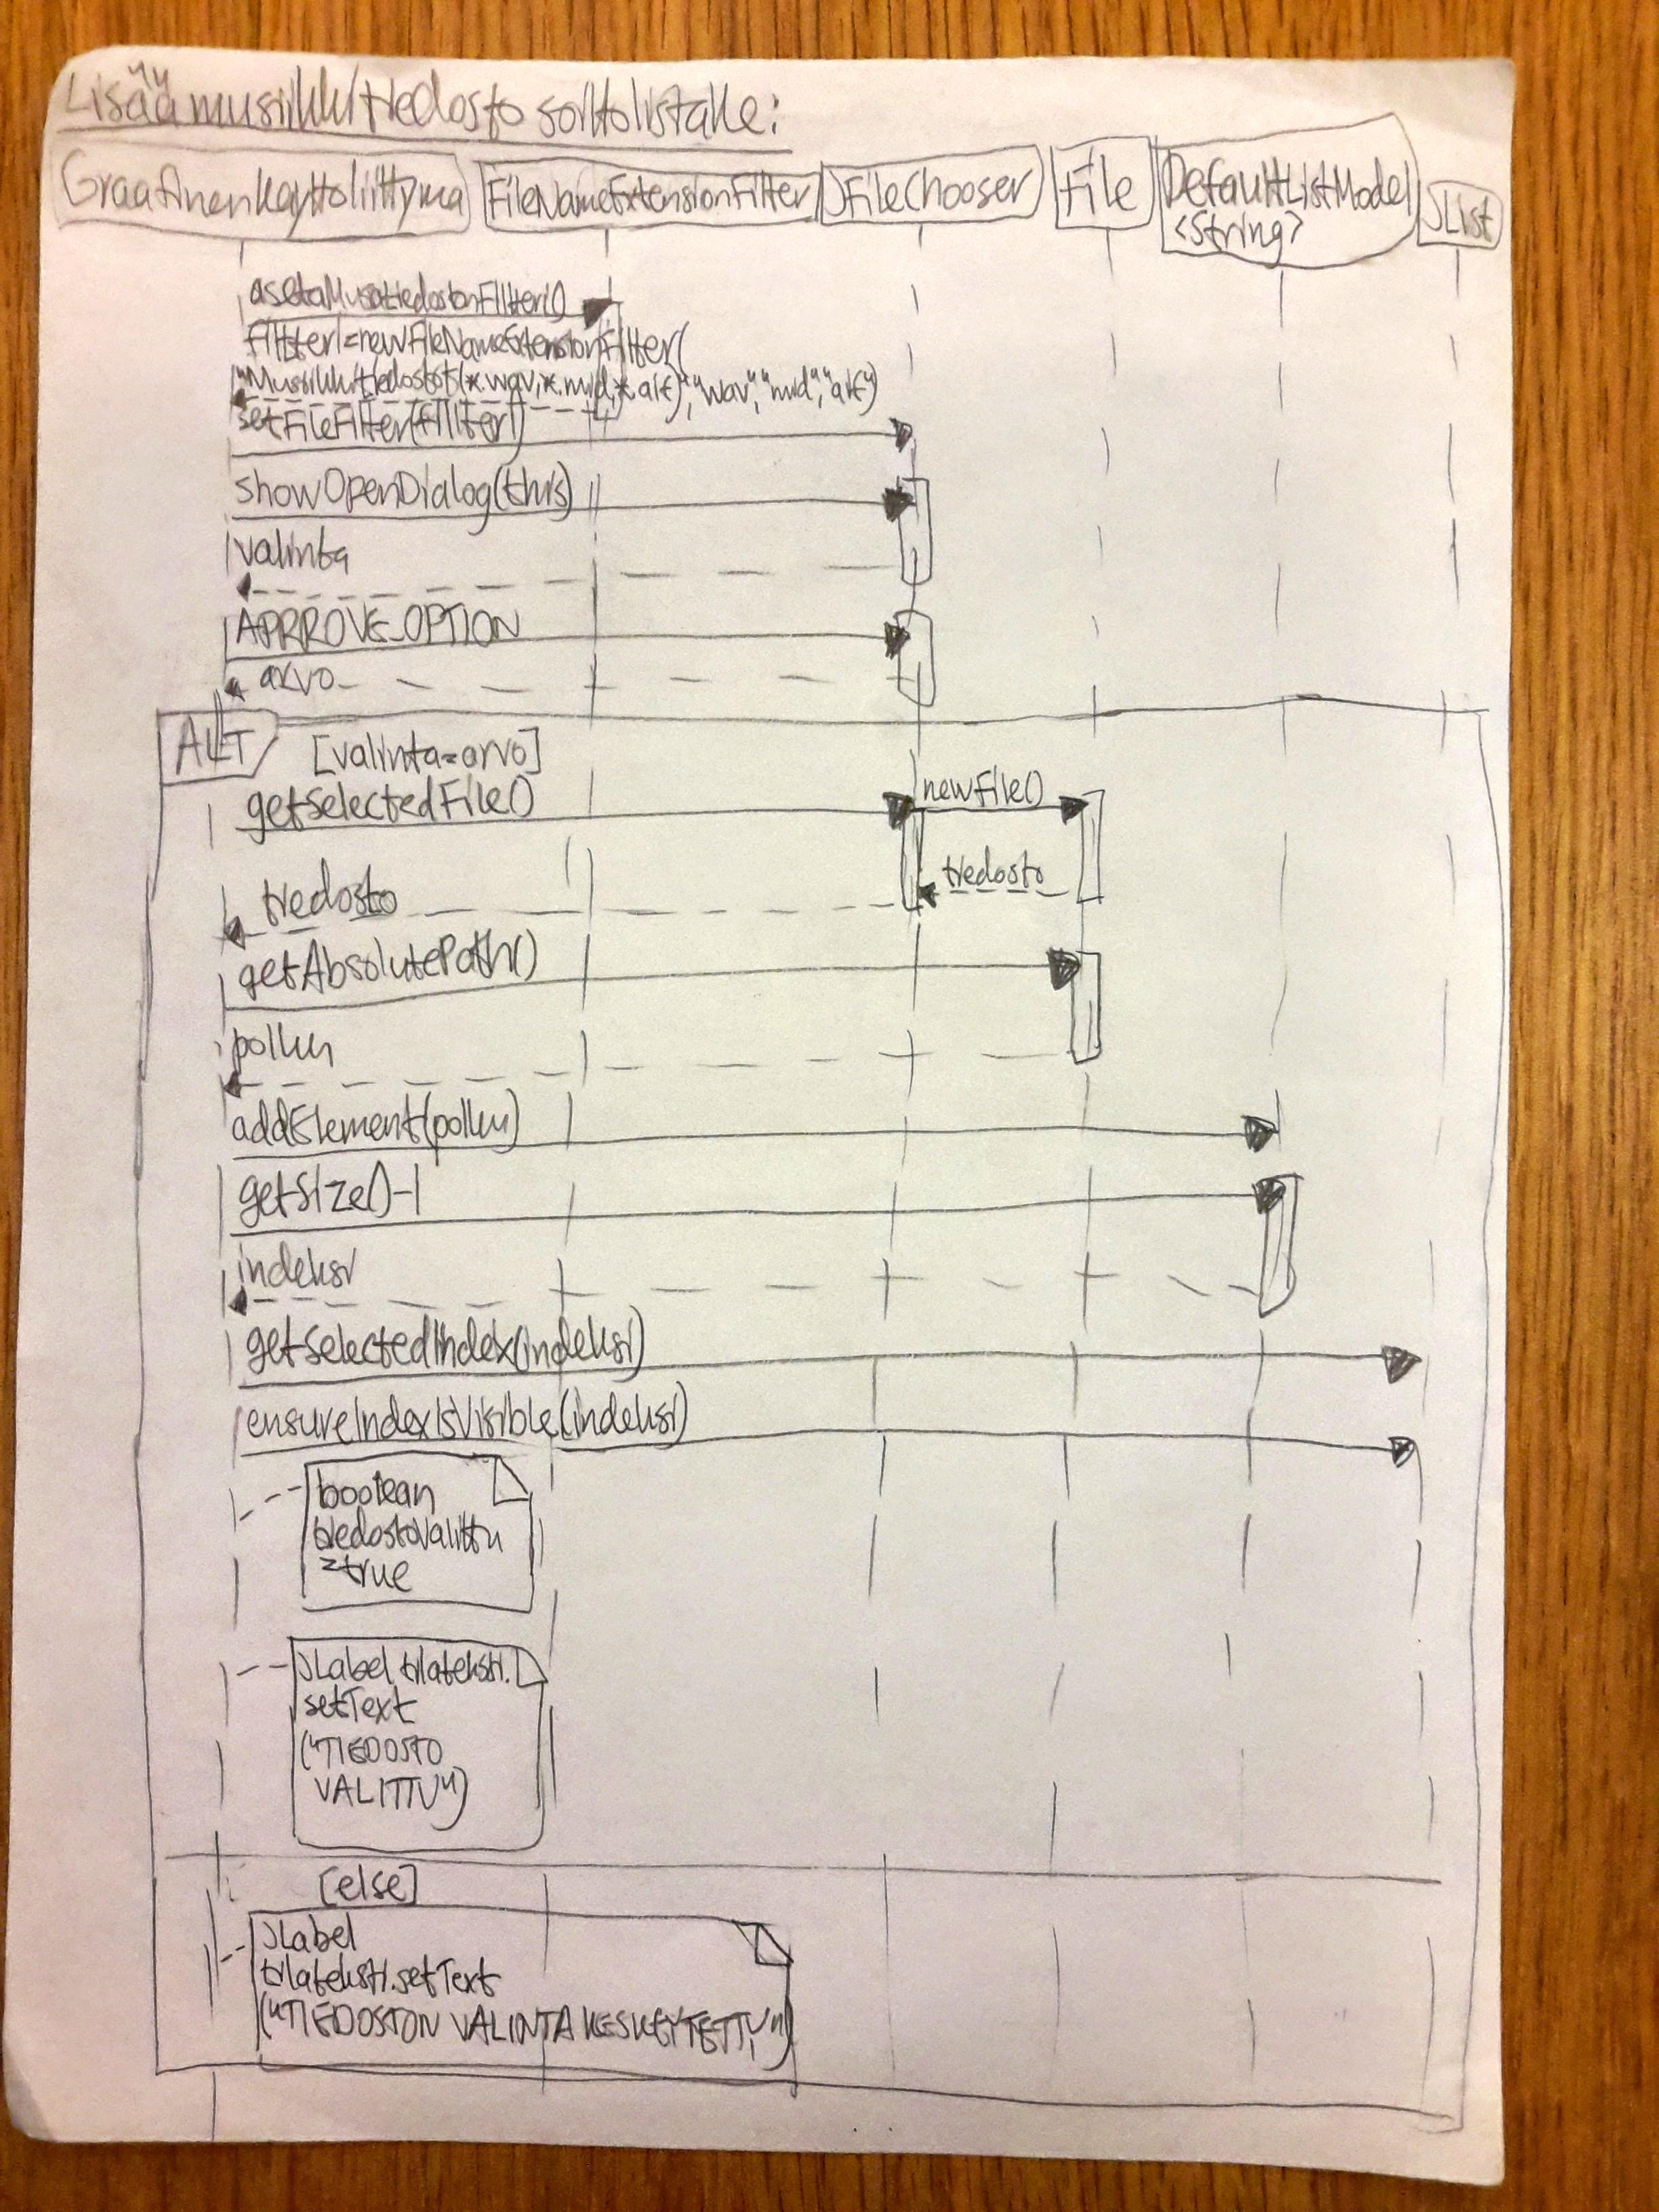 Lisää musiikkitiedosto soittolistalle:
Graafinenkayttoliittyma
FileNameExtensionFilter
JFileChooser
File
DefaultListModel
<String>
JList
asetaMusatiedostonFiltteri()
filtteri=newFileNameExtensionFilter(
"Musiikkitiedostot(*.wav,*.mid,*.aif)","wav","mid","aif")
setFileFilter(filtteri)
showOpenDialog(this)
valinta
APRROVE_OPTION
arvo
ALT
[valinta=arvo]
getSelectedFile()
newFile()
tiedosto
tiedosto
getAbsolutePath()
polku
addElement(polku)
getSize()-1
indeksi
getSelectedIndex(indeksi)
ensureIndexIsVisible(indeksi)
boolean
tiedostoValittu
=true
JLabel tilateksti.
setText
("TIEDOSTO
VALITTU")
[else]
JLabel
tilateksti.setText
("TIEDOSTON VALINTA KESKEYTETTY")